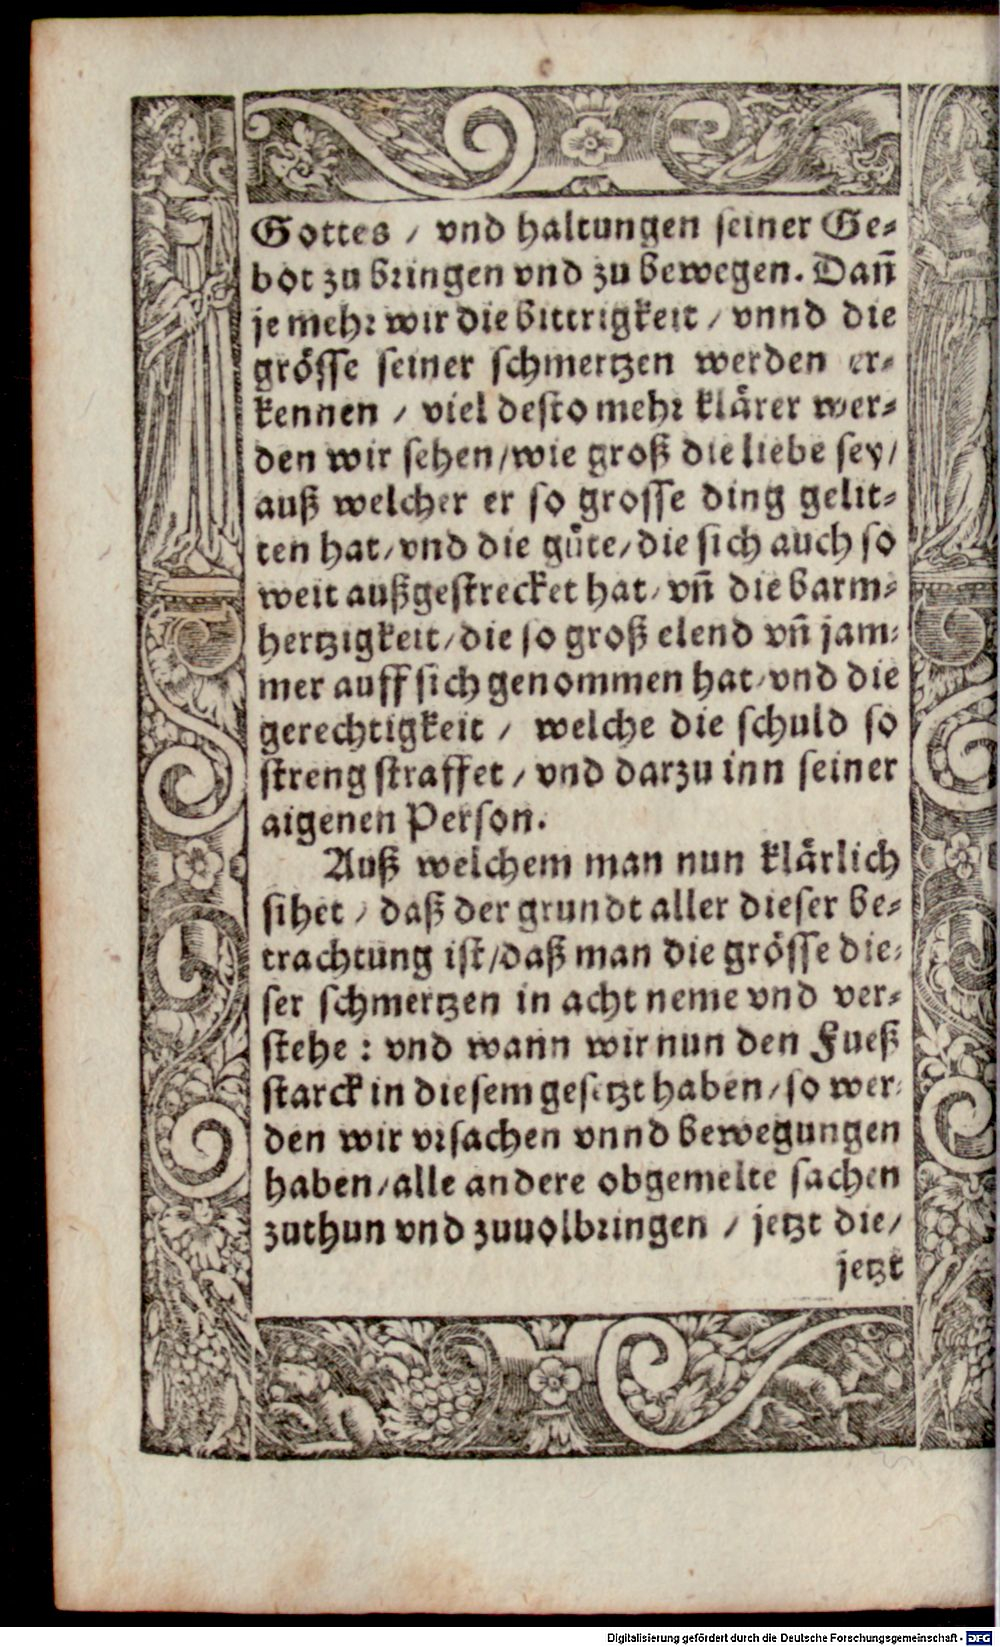 Gottes / vnd haltungen seiner Ge⸗
bot zu bringen vnd zu bewegen. Dañ
je mehr wir die bittrigkeit / vnnd die
grösse seiner schmertzen werden er⸗
kennen / viel desto mehr klärer wer⸗
den wir sehen / wie groß die liebe sey /
auß welcher er so grosse ding gelit⸗
ten hat / vnd die guͤte / die sich auch so
weit außgestrecket hat / vñ die barm⸗
hertzigkeit / die so groß elend vñ jam⸗
mer auff sich genommen hat / vnd die
gerechtigkeit / welche die schuld so
streng straffet / vnd darzu inn seiner
aigenen Person.
Auß welchem man nun klärlich
sihet / daß der grundt aller dieser be⸗
trachtung ist / daß man die grösse die⸗
ser schmertzen in acht neme vnd ver⸗
stehe : vnd wann wir nun den Fueß
starck in diesem gesetzt haben / so wer⸗
den wir vrsachen vnnd bewegungen
haben / alle andere obgemelte sachen
zuthun vnd zuuolbringen / jetzt die /
jetzt
Digitalisierung gefördert durch die Deutsche Forschungsgemeinschaft - DFG